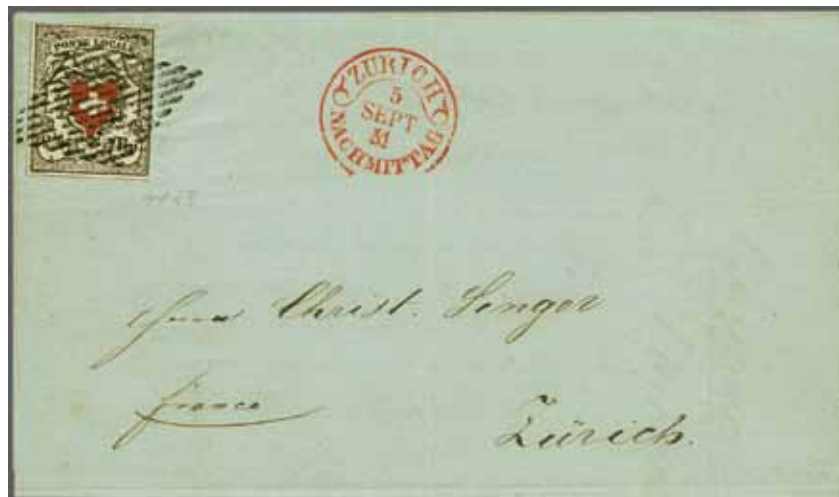 POSTE LOCALE
ZURICH
5
SEPT
51
NACHMITTAG
Herrn Christ. Senger
franco
Zürich.